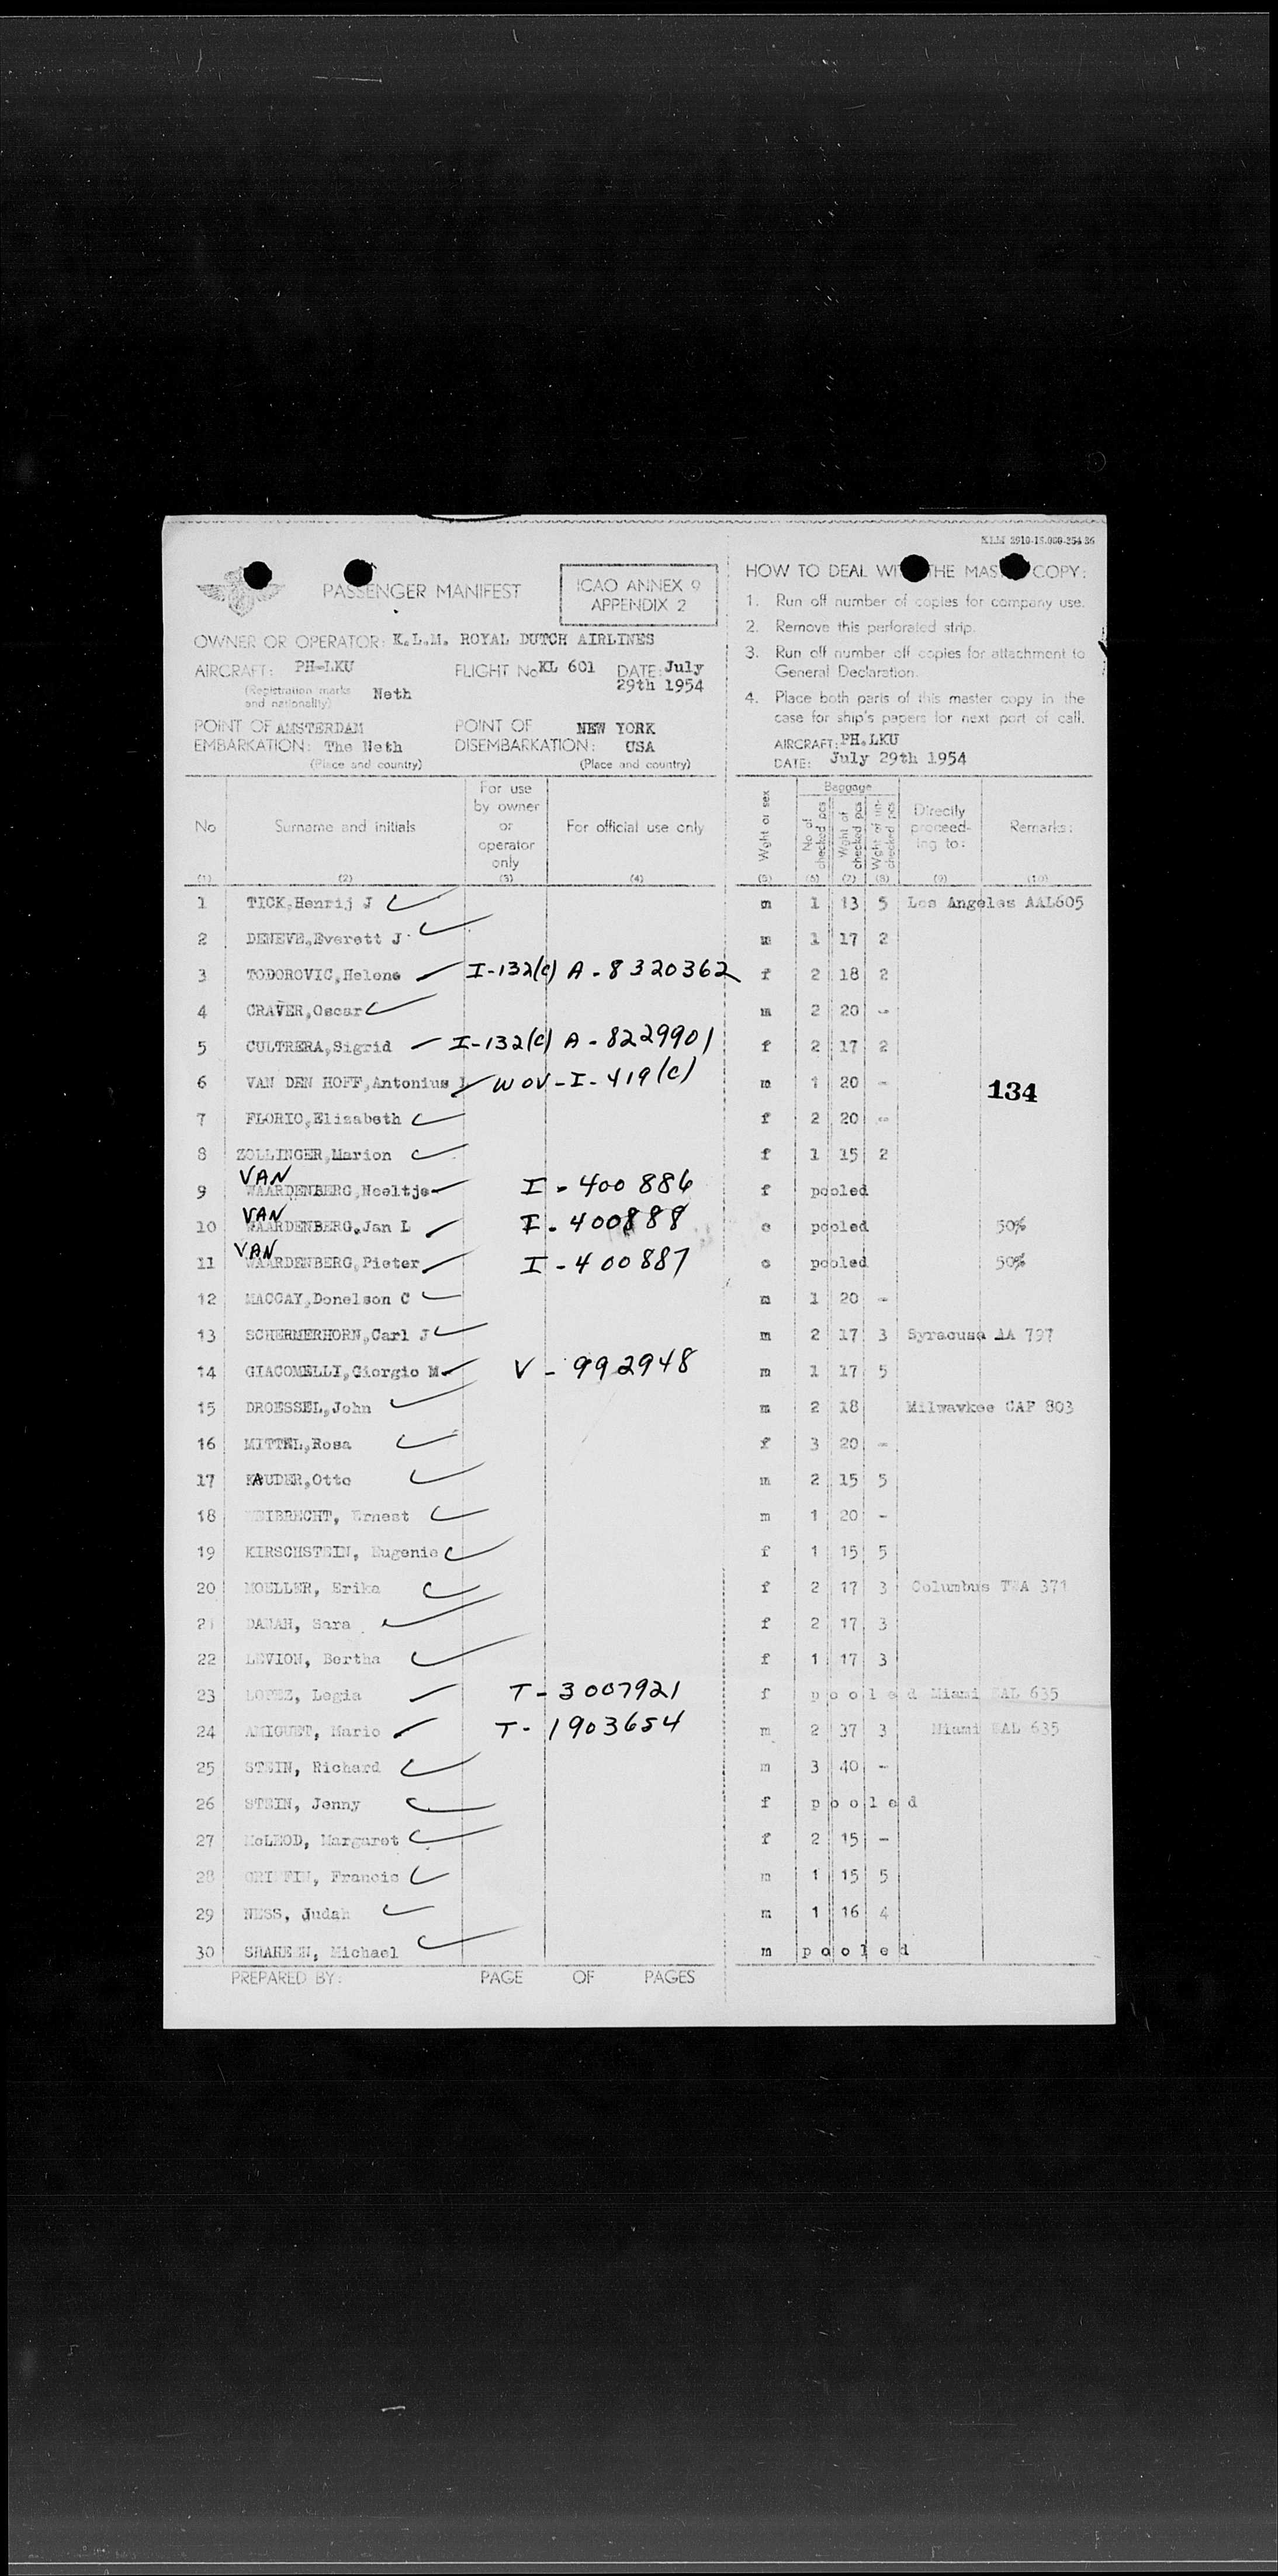 KLM 2910-15.000-254 36
PASSENGER MANIFEST
ICAO ANNEX 9
APPENDIX 2
OWNER OR OPERATOR: K.L.M. ROYAL DUTCH AIRLINES
AIRCRAFT: PH-LKU FLIGHT No KL 601 DATE: July
(Registration marks and nationality) Neth 29th 1954
POINT OF AMSTERDAM POINT OF NEW YORK
EMBARKATION: The Neth DISEMBARKATION: USA
(Place and country) (Place and country)
HOW TO DEAL WI THE MAS COPY:
1. Run off number of copies for company use.
2. Remove this perforated strip.
3. Run off number off copies for attachment to
General Declaration.
4. Place both parts of this master copy in the
case for ship's papers for next port of call.
AIRCRAFT: PH.LKU
DATE: July 29th 1954
No Surname and initials For use by owner or operator only For official use only Wght or sex Baggage No of checked pcs Wght of checked pcs Wght of un-checked pcs Directly proceed-ing to: Remarks:
(1) (2) (3) (4) (5) (6) (7) (8) (9) (10)
1 TICK,Henrij J m 1 13 5 Los Angeles AAL605
2 DENEVE,Everett J m 1 17 2
3 TODOROVIC,Helene I-132(c) A-8320362 f 2 18 2
4 CRAVER,Oscar m 2 20 -
5 CULTRERA,Sigrid I-132(c) A-8229901 f 2 17 2
6 VAN DEN HOFF,Antonius WOV-I-419(c) m 1 20 -
134
7 FLORIO,Elisabeth f 2 20 -
8 ZOLLINGER,Marion f 1 15 2
9 VAN WAARDENBERG,Noeltje I-400886 f pooled
10 VAN WAARDENBERG,Jan L I-400888 c pooled 50%
11 VAN WAARDENBERG,Pieter I-400887 c pooled 50%
12 MACCAY,Donelson C m 1 20 -
13 SCHERMERHORN,Carl J m 2 17 3 Syracuse AA 797
14 GIACOMELLI,Giorgio M V-992948 m 1 17 5
15 DROESSEL,John m 2 18 Milwavkee CAP 803
16 MITTEL,Rosa f 3 20 -
17 KAUDER,Otto m 2 15 5
18 WEIBRECHT, Ernest m 1 20 -
19 KIRSCHSTEIN, Eugenie f 1 15 5
20 MOELLER, Erika f 2 17 3 Columbus TWA 371
21 DANAH, Sara f 2 17 3
22 LEVION, Bertha f 1 17 3
23 LOPEZ, Legia T-3007921 f pooled Miami EAL 635
24 AMIGUET, Mario T-1903654 m 2 37 3 Miami EAL 635
25 STEIN, Richard m 3 40 -
26 STEIN, Jenny f pooled
27 McLEOD, Margaret f 2 15 -
28 GRIFFIN, Francis m 1 15 5
29 NESS, Judah m 1 16 4
30 SHAHEEN, Michael m pooled
PREPARED BY: PAGE OF PAGES